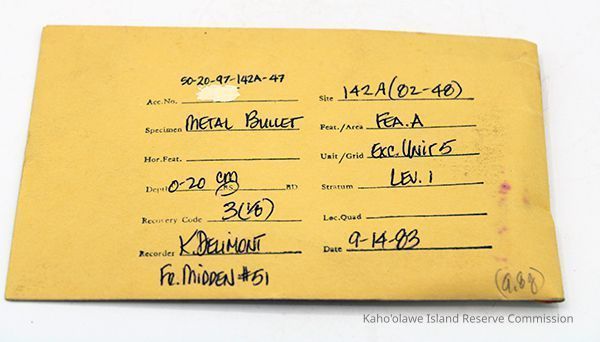 50-20-97-142A-47
Acc.No.
Site 142A(82-48)
Specimen METAL BULLET
Feat./Area FEA. A
Hor.Feat.
Unit/Grid EXC. UNIT 5
Depth 0-20 cm BS BD
Stratum LEV. 1
Recovery Code 3(1/8)
Loc.Quad
Recorder K. DELIMONT
Date 9-14-83
FR. MIDDEN #51
Kaho'olawe Island Reserve Commission